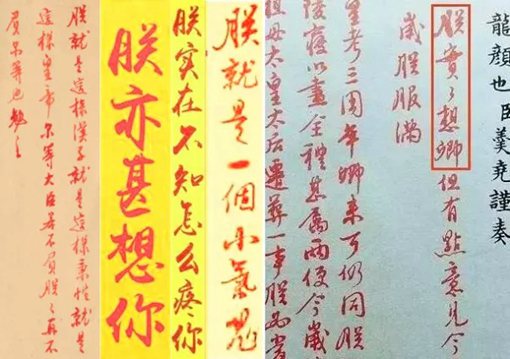 龍顏也臣羹堯謹奏
朕實々想卿但有點意見今
歲朕服滿
皇考三周年卿來可仍同朕
陵寢以盡全禮甚屬兩便今歲
祖母太皇太后遷葬一事朕
朕就是一個小氣鬼
朕实在不知怎么疼你
朕亦甚想你
朕就是這樣漢子就是這樣秉性就是
這樣皇帝尔等大臣若不負朕朕再不
負尔等也勉之